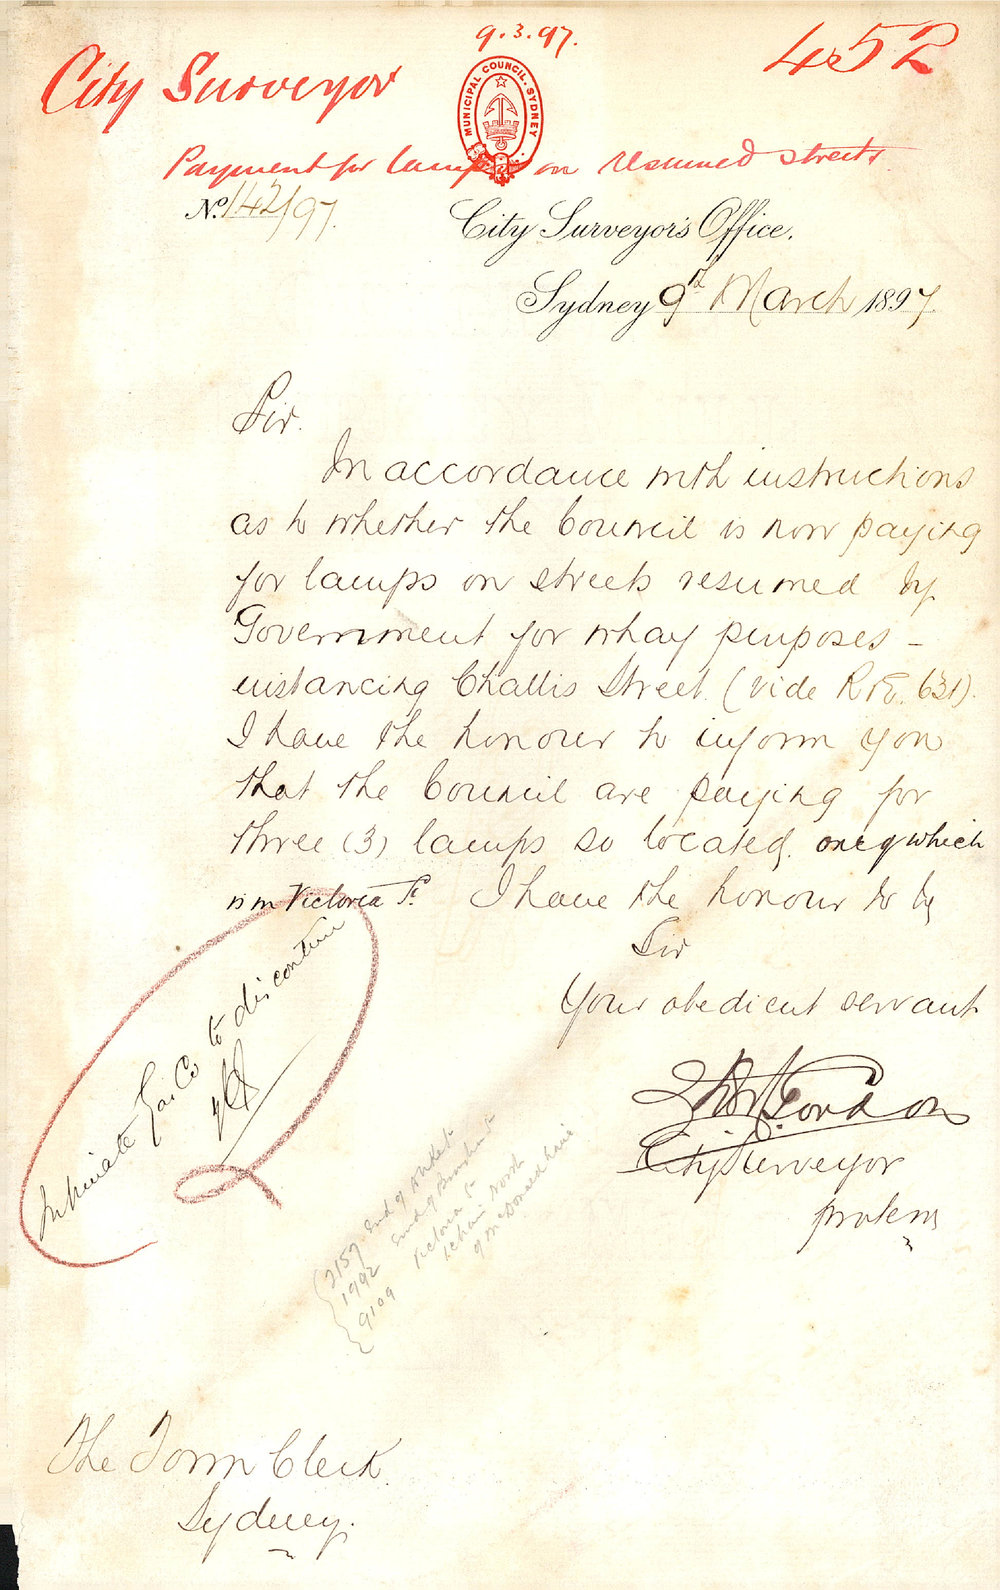 9.3.97.
452
City Surveyor
MUNICIPAL COUNCIL. SYDNEY
Payment for lamps on resumed streets
No. 142/97.
City Surveyor's Office.
Sydney 9th March 1897.
Sir.
In accordance with instructions
as to whether the Council is now paying
for lamps on streets resumed by
Government for wharf purposes –
instancing Challis Street. (vide R 631).
I have the honour to inform you
that the Council are paying for
three (3) lamps so located. one of which
is in Victoria St. I have the honour to be
Sir
Your obedient servant
Gordon
City Surveyor
protem
Intimate Gas Co to discontinue
2157. End of Market St
1992 End of Bathurst St
9109 Victoria St
1 chain North
of McDonald lane
The Town Clerk.
Sydney.